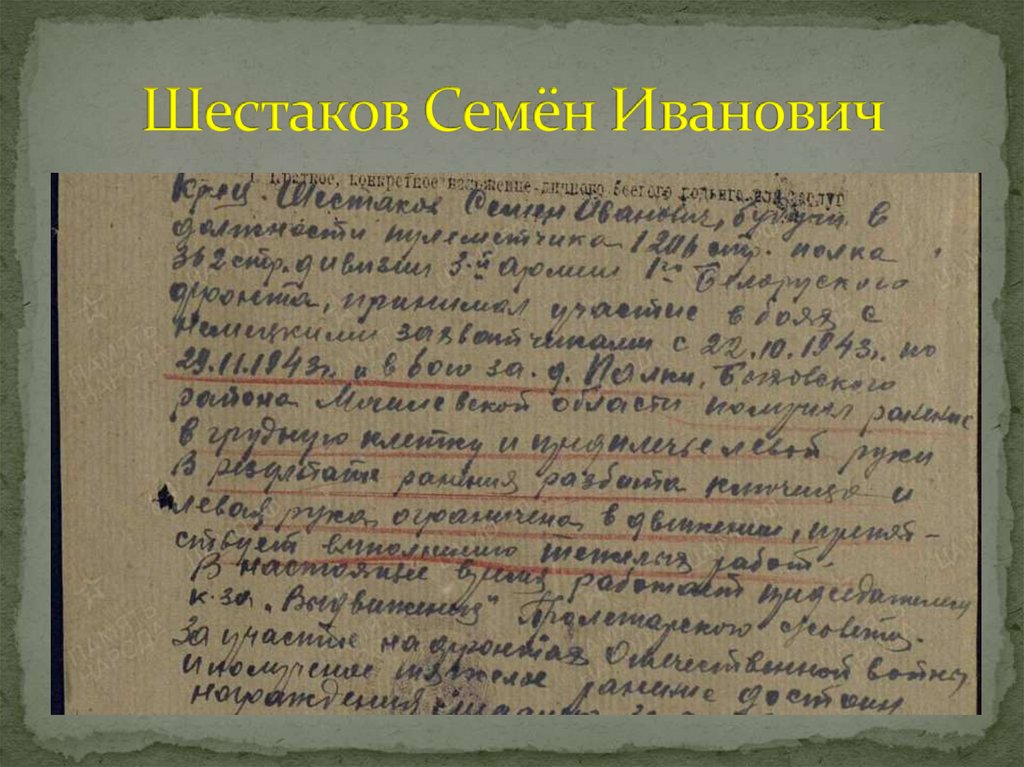 Шестаков Семён Иванович
1. Краткое, конкретное изложение личного боевого подвига или заслуг
Кр-ец Шестаков Семен Иванович, будучи в
должности пулеметчика 1206 стр. полка
362 стр. дивизии 3-й армии 1го Белоруского
фронта, принимал участие в боях с
немецкими захватчиками с 22.10.1943г. по
29.11.1943г. и в бою за д. Палки, Быховского
района Могилевской области получил ранение
в грудную клетку и предплечье левой руки
В результате ранения разбита ключица и
левая рука ограничена в движении, препят-
ствует выполнению тяжелых работ.
В настоящее время работает председателем
к-за „Выдвижения" Пролетарского с/совета.
За участие на фронтах Отечественной войны
и получение тяжелое ранение достоин
награждения